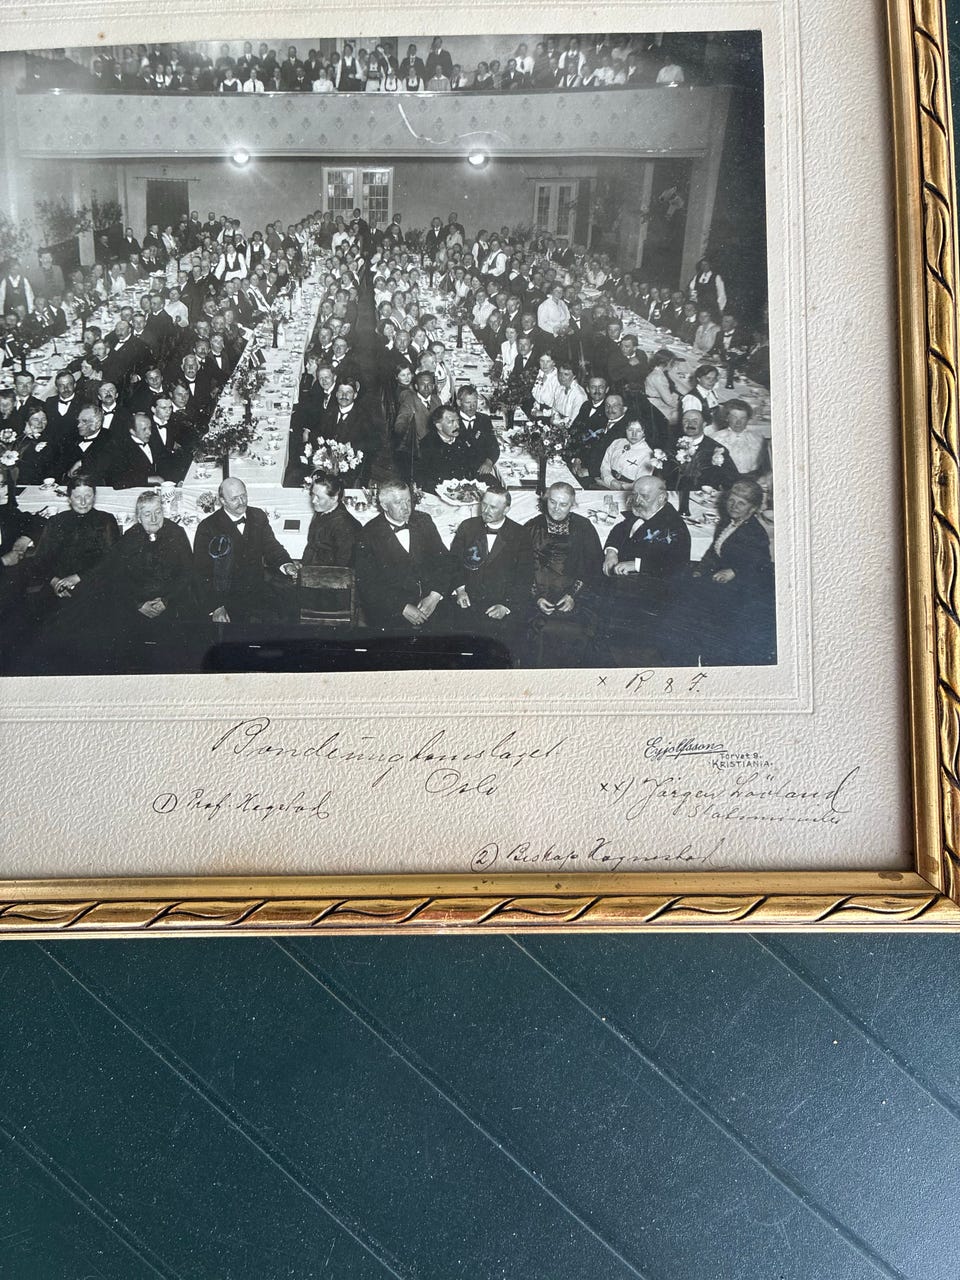 1
2
x x
x
x
x R & F.
Bondeungdomslaget
Oslo
Eyjolfsson
Torvet 9.
KRISTIANIA.
1) Prof. Hegstad
xx) Jörgen Lövland
Statsminister
2) Biskop Hognestad